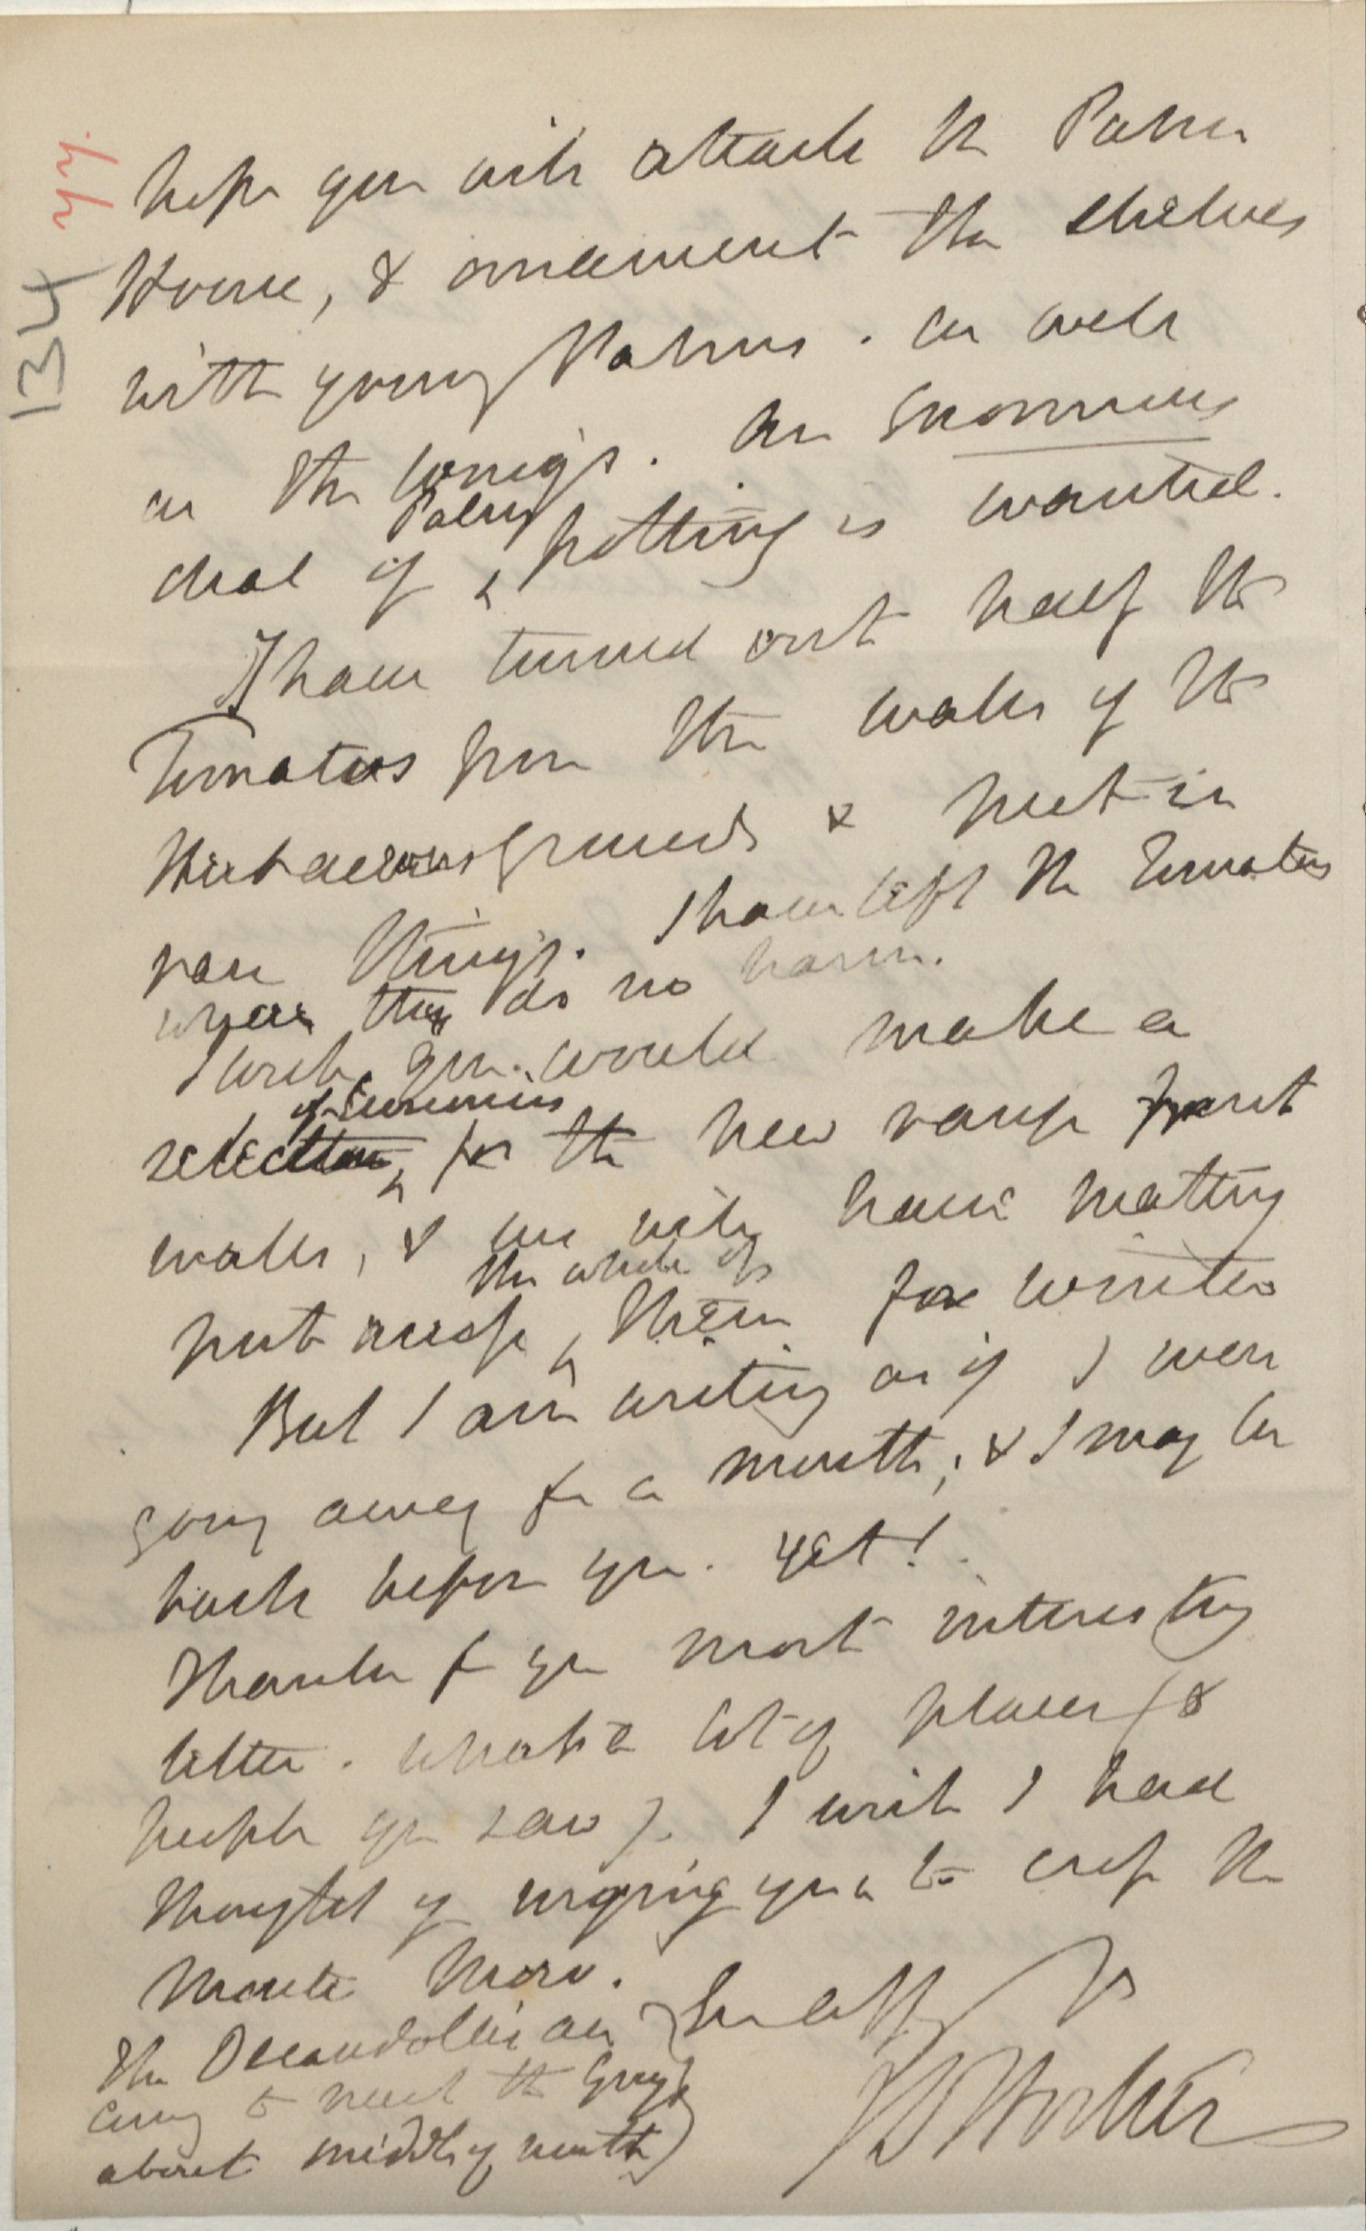 134
hope you will attack the Palm
House, & ornament the shelves
with young Palms. as well
as the wings. An Enormous
deal of Palm potting is wanted.
I have turned out half the
Tomatos from the walls of the
Herbaceous ground & put in
rare things. I have left the Tomatos
where they do no harm.
I wish you would make a
selection of for the new range front
walls, & we will have matting
put over the whole of them for winter
But I am writing as if I were
going away for a month, & I may be
back before you yet!
Thanks for yr most interesting
letter. What a lot of places (&
people you saw). I wish I had
thought of urging you to crop the
Monte Moro.
Ever aff yrs
JD Hooker
The Decandolles are
coming to meet the Grays
about middle of month